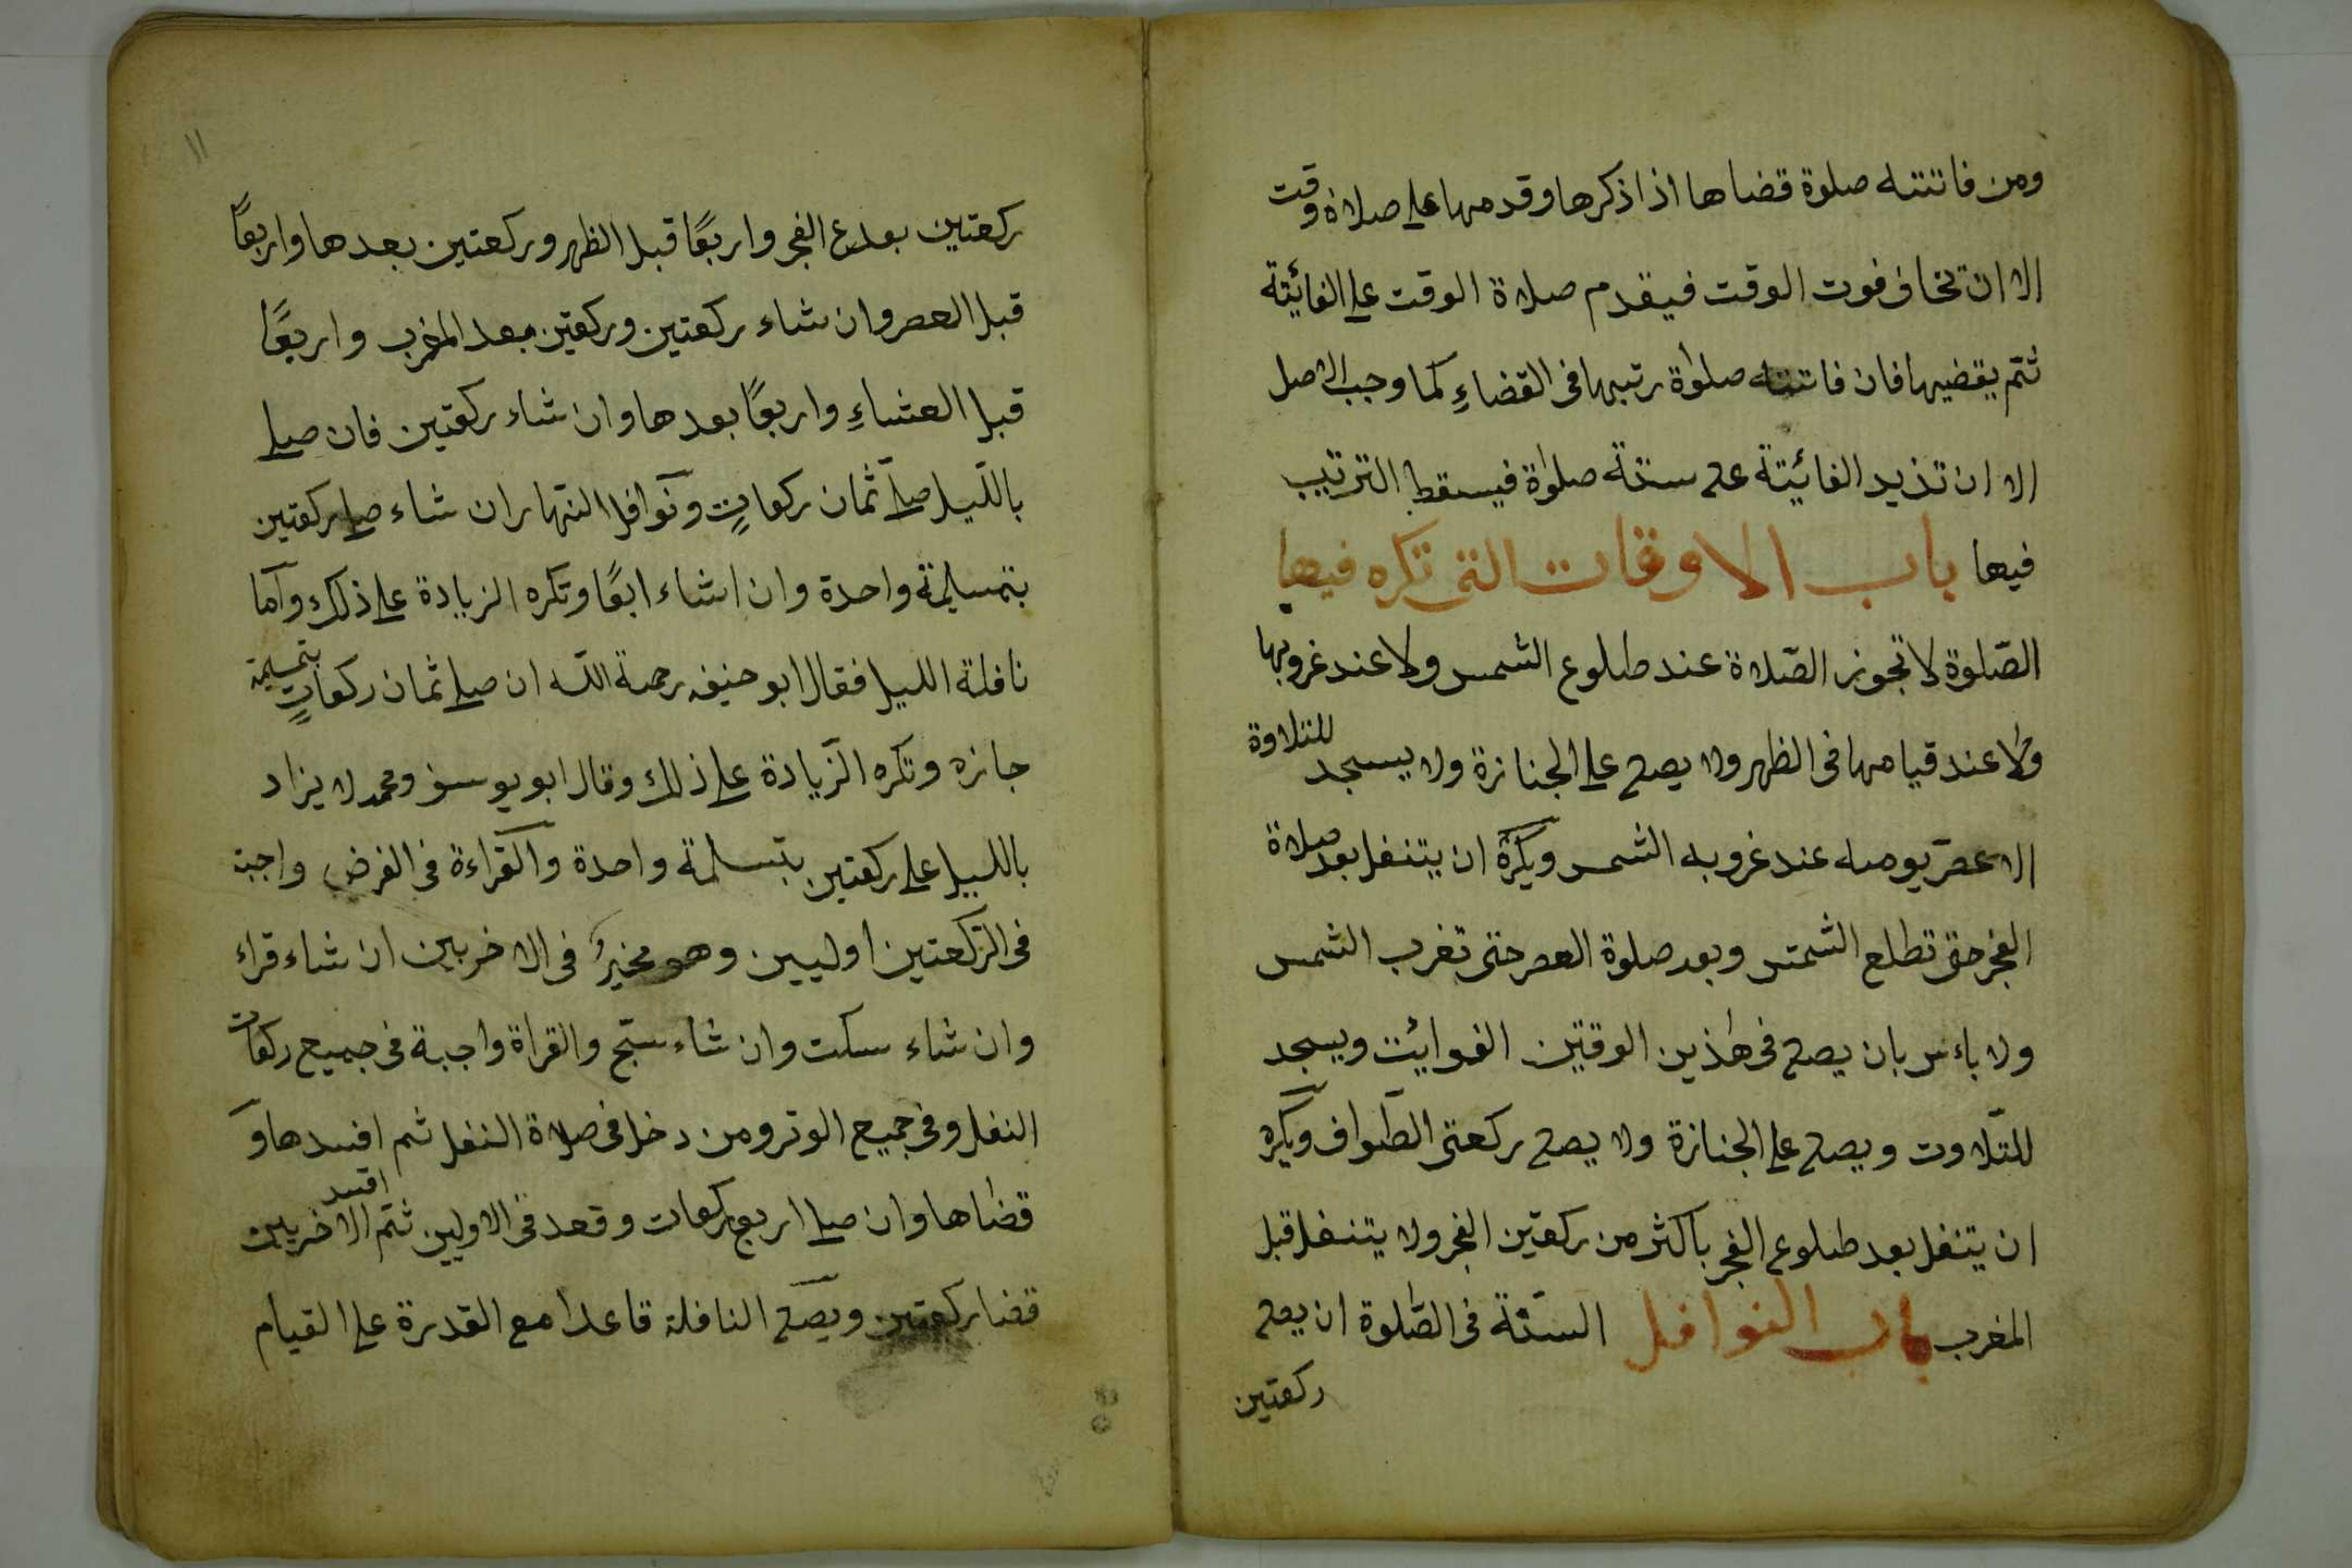 ومن فاتته صلوة قضاها اذا ذكرها وقدمها على صلاة وقت
الا ان تخاف فوت الوقت فيقدم صلاة الوقت على الفائيتة
ثمّ يقضيها فان فاتته صلوٰة رتبها فى القضاءِ كما وجب الاصل
الا ان تذيد الفائيتة على ستة صلوٰة فيسقط الترتيب
فيها باب الاوقات التى تكره فيها
الصّلوة لا تجوز الصّلاة عند طلوع الشمس ولا عند غروبها
ولا عند قيامها فى الظهر ولا يصلى على الجنازة ولا يسجد للتلاوة
الا عصر يومه عند غروبه الشمس ويكره ان يتنفل بعد صلاة
الفجر حتى تطلع الشمس وبعد صلوة العصر حتى تغرب الشمس
ولا باءس بان يصلى فى هٰذين الوقتين الفوايئت ويسجد
للتّلاوت ويصلى على الجنازة ولا يصلى ركعتى الطّواف ويكره
ان يتنفل بعد طلوع الفجر باكثر من ركعتين الفجر ولا يتنفل قبل
المغرب باب النوافل السنّة فى الصّلوة ان يصلى
ركعتين
١١
ركعتين بعد الفجر واربعًا قبل الظهر وركعتين بعدها واربعًا
قبل العصر وان شاء ركعتين وركعتين بعد المغرب واربعًا
قبل العشاءِ واربعًا بعدها وان شاء ركعتين فان صلى
بالّليل صلىّ ثمان ركعاتٍ ونوافل النّهار ان شاء صلى ركعتين
بتسليمة واحدة وان اشاء ابعًا وتكره الزيادة على ذلك وامّا
نافلة الليل فقال ابو حنيفه رحمة اللّه ان صلى ثمان ركعاتٍ بتسليمة
جازه وتكره الزّيادة على ذلك وقال ابو يوسف ومحمد لا يزاد
بالليل على ركعتين بتسلمة واحدة والقراءة فى الفرض واجبة
فى الرّكعتين اوليين وهو مخيرٌ فى الاخريين ان شاء قراء
وان شاء سكت وان شاء سبّح والقراة واجبة فى جميع ركعات
النفل وفى جميع الوتر ومن دخل فى صلاة النفل ثم افسدها و
قضاها وان صلى اربع ركعات وقعد فى الاولين ثمّ افسد الاخريين
قضا ركعتين ويصلى النافلة قاعدا مع القدرة على القيام